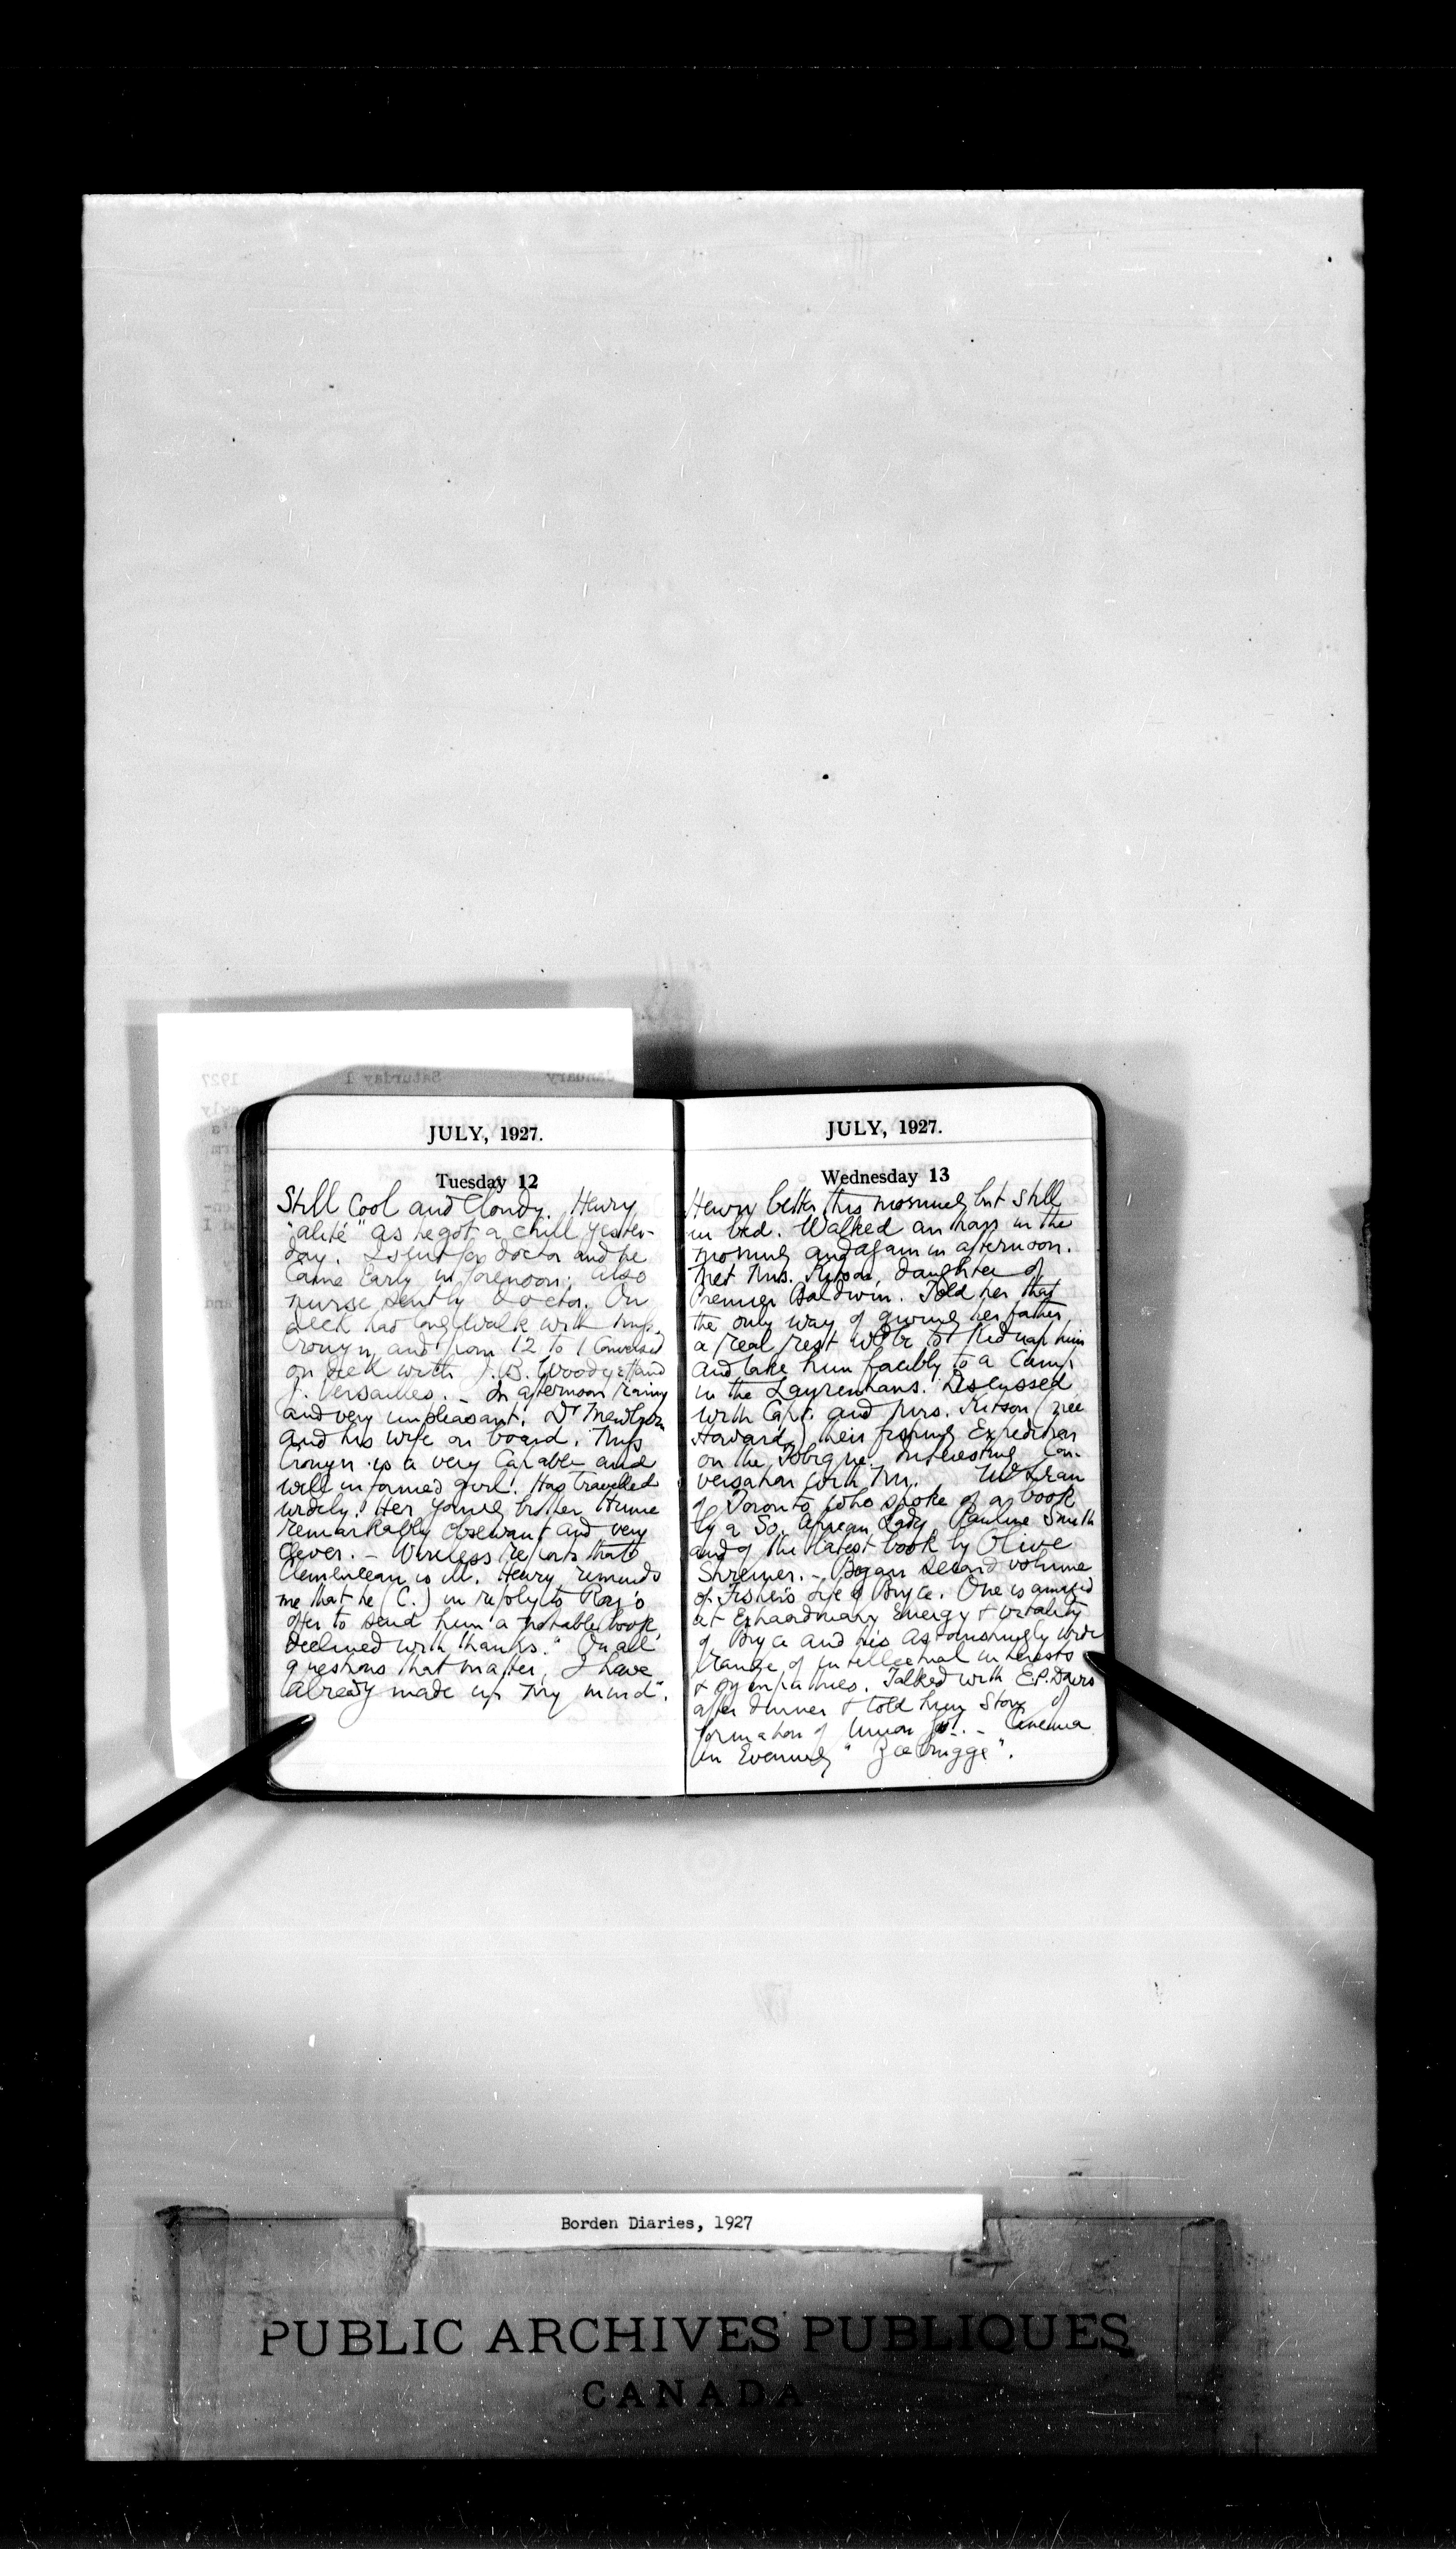 JULY, 1927.
Tuesday 12
Still Cool and Cloudy. Henry
"alité" as he got a chill yester-
day. I sent for doctor and he
came early in forenoon; also
nurse sent by doctor. On
deck had long walk with Miss
Cronyn, and from 12 to 1 Conversed
on deck with J.B. Woodyatt and
J. Versailles. – In afternoon rainy
and very unpleasant. Dr
and his wife on board. Miss
Cronyn is a very Capable and
well informed girl. Has travelled
widely. Her young brother Hume
remarkably observant and very
clever. – Wireless reports that
Clemenceau is ill. Henry reminds
me that he (C.) in reply to Roy's
offer to send him a notable book,
declined with thanks. "On all
questions that matter, I have
already made up my mind".
JULY, 1927.
Wednesday 13
Henry better this morning but still
in bed. Walked an hour in the
morning and again in afternoon.
Met Mrs. daughter of
Premier Baldwin. Told her that
the only way of giving her father
a real rest wd be to Kidnap him
and take him forcibly to a Camp
in the Laurentians. Discussed
with Capt. and Mrs. Kitson (nee
Howard) their fishing Expedition
on the Tobique. Interesting Con-
versation with Mr. McLean
of Toronto who spoke of a book
by a So. African Lady, Pauline Smith
and of the latest book by Olive
Shreiner. – Began second volume
of Fisher's life of Bryce. One is amazed
at Extraordinary Energy & vitality
of Bryce and his astonishingly wide
range of intellectual interests
& sympathies. Talked with E.P. Davis
after dinner & told him Story of
formation of Union Govt. – Cinema
in Evening "Zeebrugge".
Borden Diaries, 1927
PUBLIC ARCHIVES PUBLIQUES
CANADA